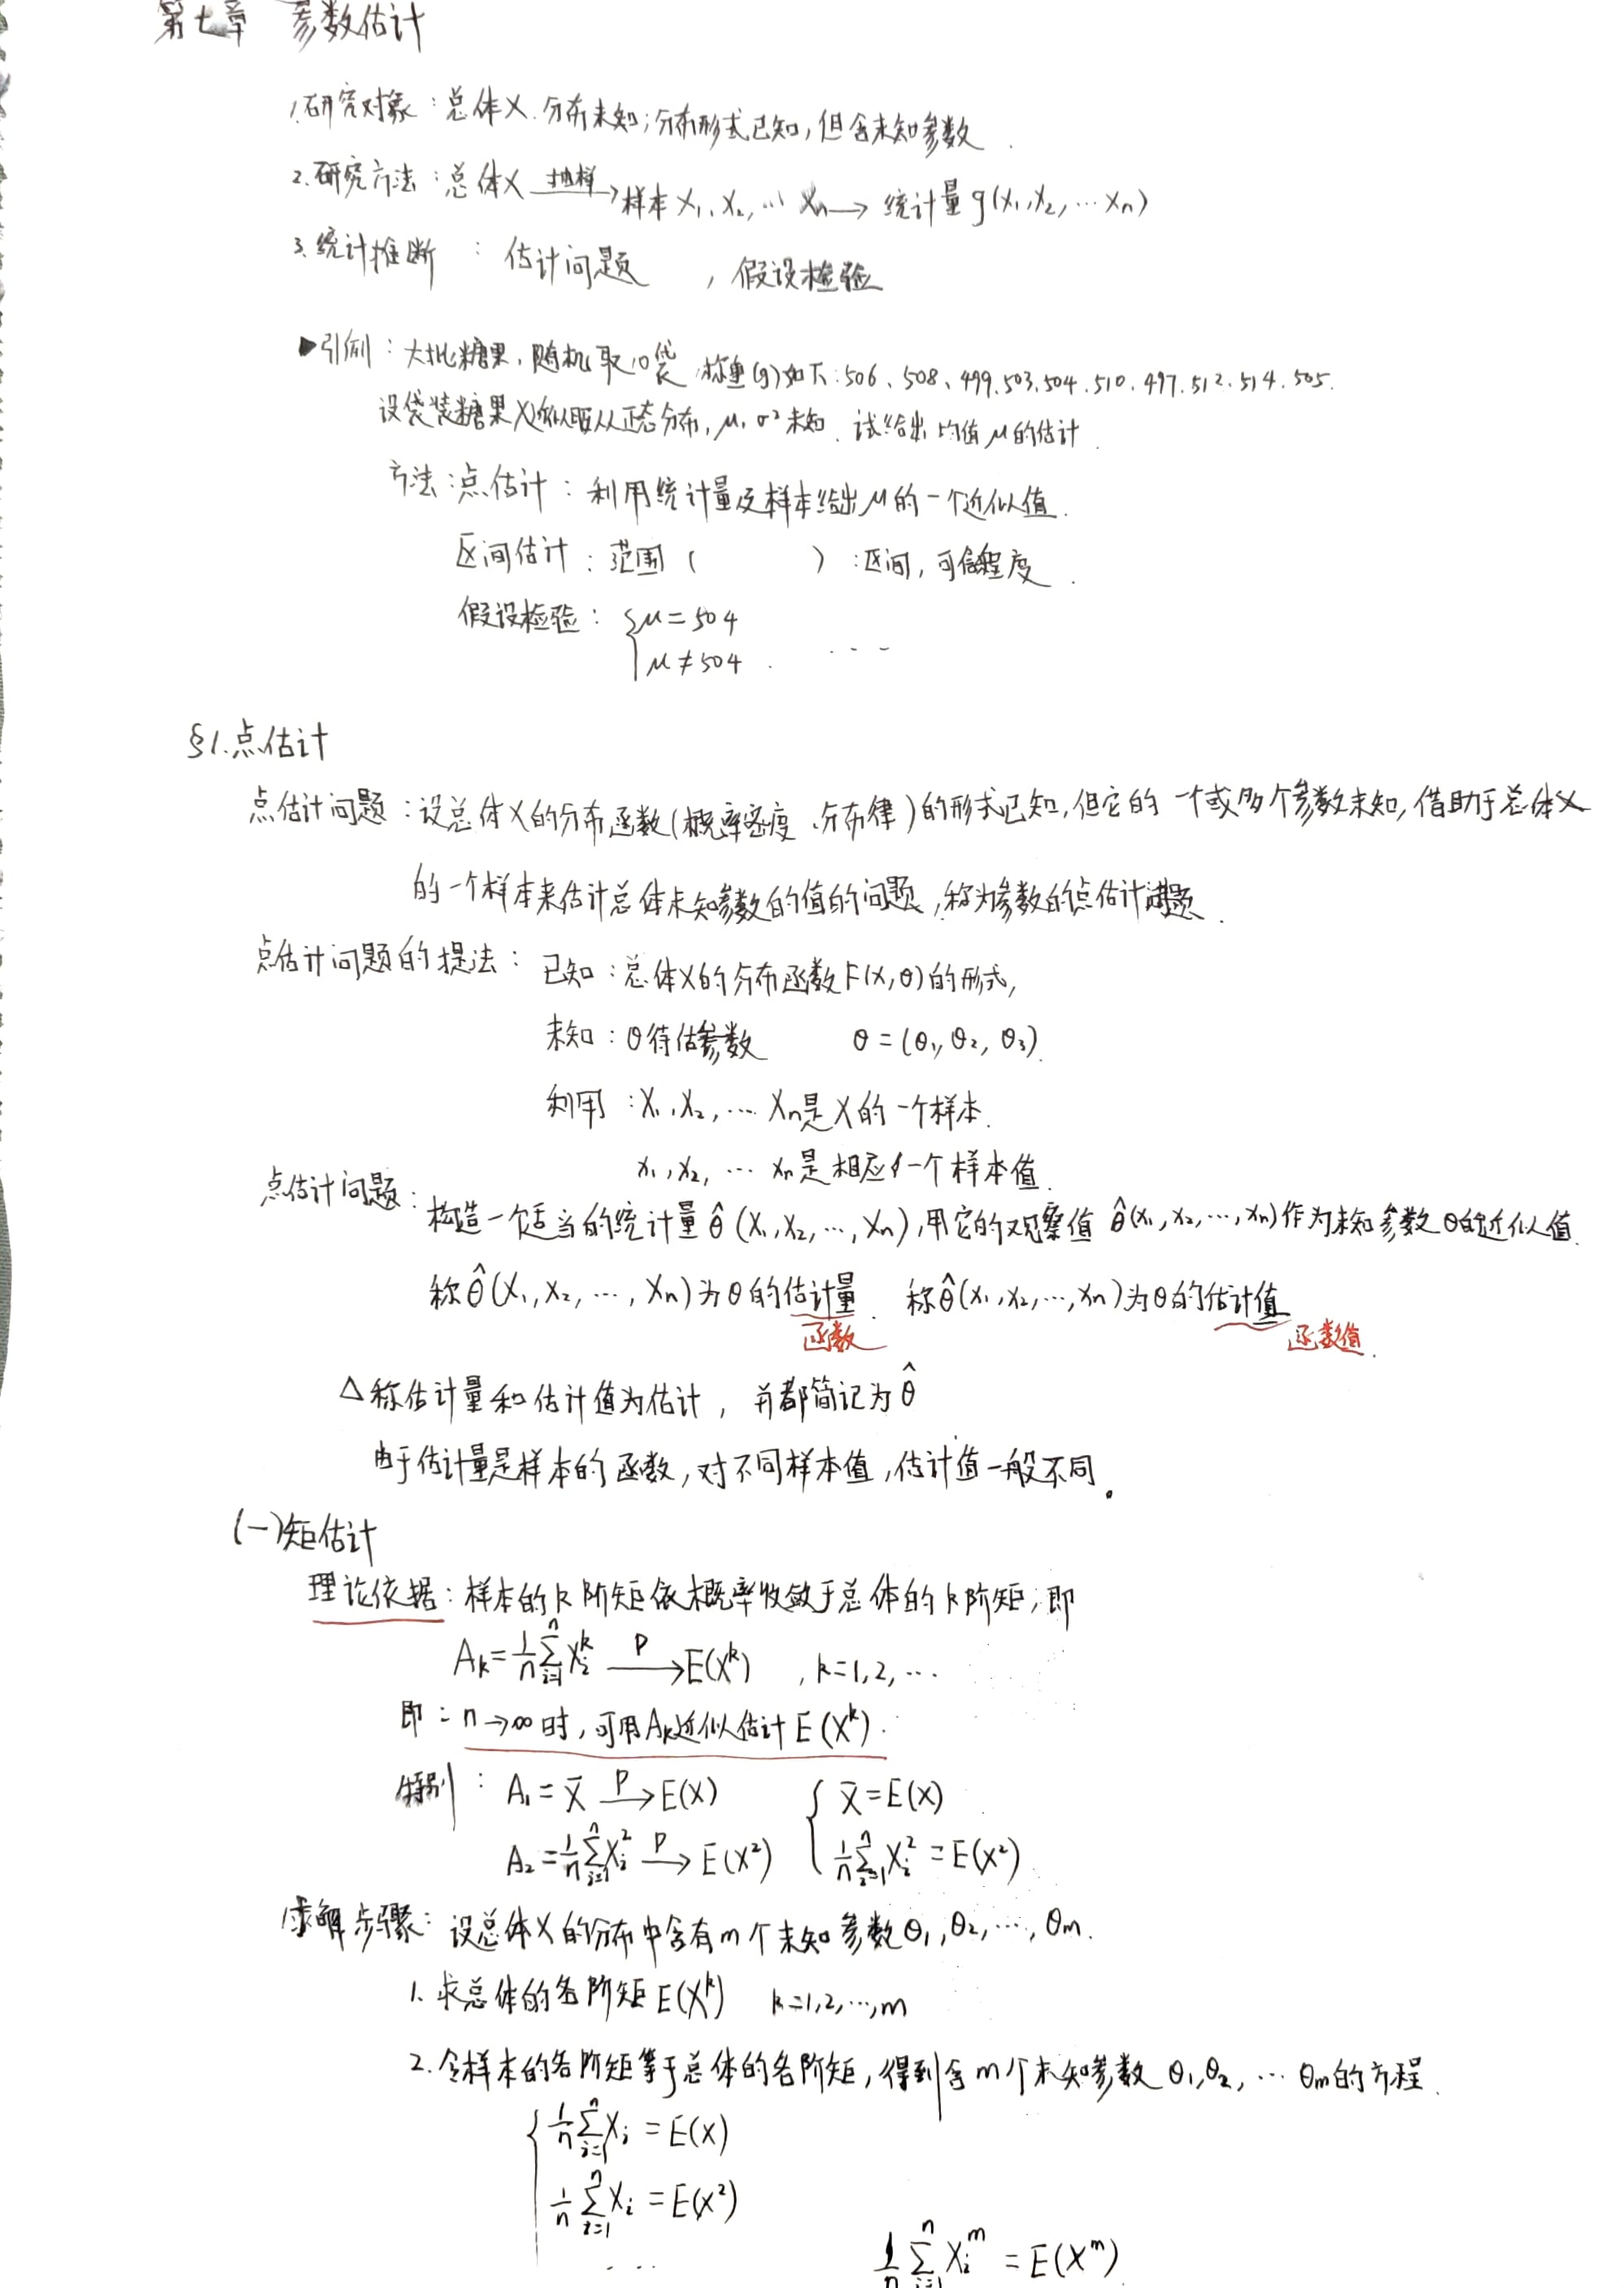 第七章 参数估计
1.研究对象：总体X.分布未知；分布形式已知，但含未知参数.
2.研究方法：总体X —抽样→ 样本X₁, X₂, … Xₙ → 统计量g(X₁, X₂, … Xₙ)
3.统计推断：估计问题，假设检验
▶引例：大批糖果，随机取10袋，称重(g)如下：506、508、499.503.504.510.497.512.514.505.
设袋装糖果X近似服从正态分布，μ, σ²未知.试给出均值μ的估计.
方法：点估计：利用统计量及样本给出μ的一个近似值.
区间估计：范围（ ）：区间，可信程度.
假设检验：{ μ = 504
μ ≠ 504. ---
§1.点估计
点估计问题：设总体X的分布函数(概率密度、分布律)的形式已知，但它的一个或多个参数未知，借助于总体X
的一个样本来估计总体未知参数的值的问题，称为参数的点估计问题.
点估计问题的提法：已知：总体X的分布函数F(X,θ)的形式，
未知：θ待估参数 θ = (θ₁, θ₂, θ₃).
利用：X₁, X₂, … Xₙ是X的一个样本.
x₁, x₂, … xₙ是相应的一个样本值.
点估计问题：构造一个适当的统计量θ̂(X₁, X₂, …, Xₙ)，用它的观察值θ̂(x₁, x₂, …, xₙ)作为未知参数θ的近似值.
称θ̂(X₁, X₂, …, Xₙ)为θ的估计量. 称θ̂(x₁, x₂, …, xₙ)为θ的估计值
函数 函数值.
△称估计量和估计值为估计，并都简记为θ̂
由于估计量是样本的函数，对不同样本值，估计值一般不同。
(一)矩估计
理论依据：样本的k阶矩依概率收敛于总体的k阶矩，即
Aₖ = 1/n Σⁿᵢ₌₁ Xᵢᵏ —P→ E(Xᵏ) , k=1,2,…
即：n→∞时，可用Aₖ近似估计E(Xᵏ).
特别：A₁ = X̄ —P→ E(X) { X̄ = E(X)
A₂ = 1/n Σⁿᵢ₌₁ Xᵢ² —P→ E(X²) 1/n Σⁿᵢ₌₁ Xᵢ² = E(X²)
求解步骤：设总体X的分布中含有m个未知参数θ₁, θ₂, …, θm.
1.求总体的各阶矩E(Xᵏ) k=1,2,…,m
2.令样本的各阶矩等于总体的各阶矩，得到含m个未知参数θ₁,θ₂, … θm的方程.
{ 1/n Σⁿᵢ₌₁ Xᵢ = E(X)
1/n Σⁿᵢ₌₁ Xᵢ = E(X²)
...
1/n Σⁿᵢ₌₁ Xᵢᵐ = E(Xᵐ)